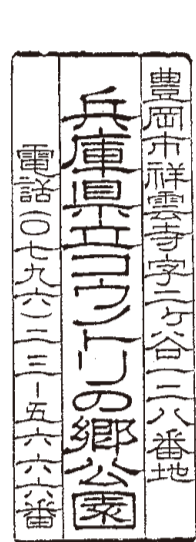 豊岡市祥雲寺字二ケ谷一二八番地
兵庫県立コウノトリの郷公園
電話(〇七九六)二三-五六六六番